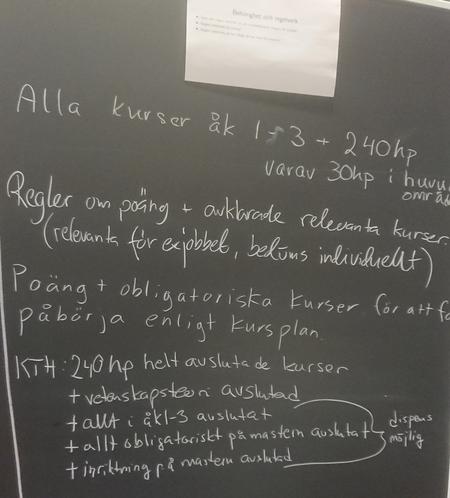 Behörighet och regelverk
Alla kurser åk 1-3 + 240hp
varav 30hp i huvu
områd
Regler om poäng + avklarade relevanta kurser.
(relevanta för exjobbet, bedöms individuellt)
Poäng + obligatoriska kurser för att få
påbörja enligt kursplan.
KTH: 240hp helt avslutade kurser
+ vetenskapsteori avslutad
+ allt i åk1-3 avslutat
+ allt obligatoriskt på mastern avslutat
+ inriktning på mastern avslutad
dispens
möjlig